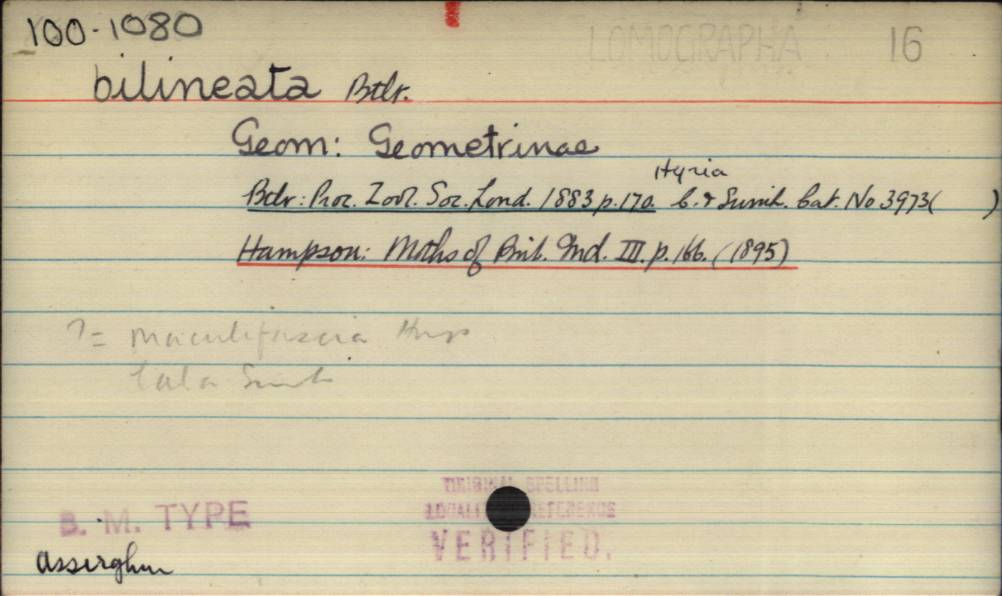 100-1080
LOMOGRAPHA 16
bilineata Btlr.
Geom: Geometrinae
Hyria
Btlr: Proc. Zool. Soc. Lond. 1883 p.170. C. & Swinh. Cat. No 3973( )
Hampson: Moths of Brit. Ind. III. p. 166. (1895)
?= maculifascia Hmps
Swinh
ORIGINAL SPELLING
LOCALI REFERENCE
B. M. TYPE
VERIFIED.
Assirghur